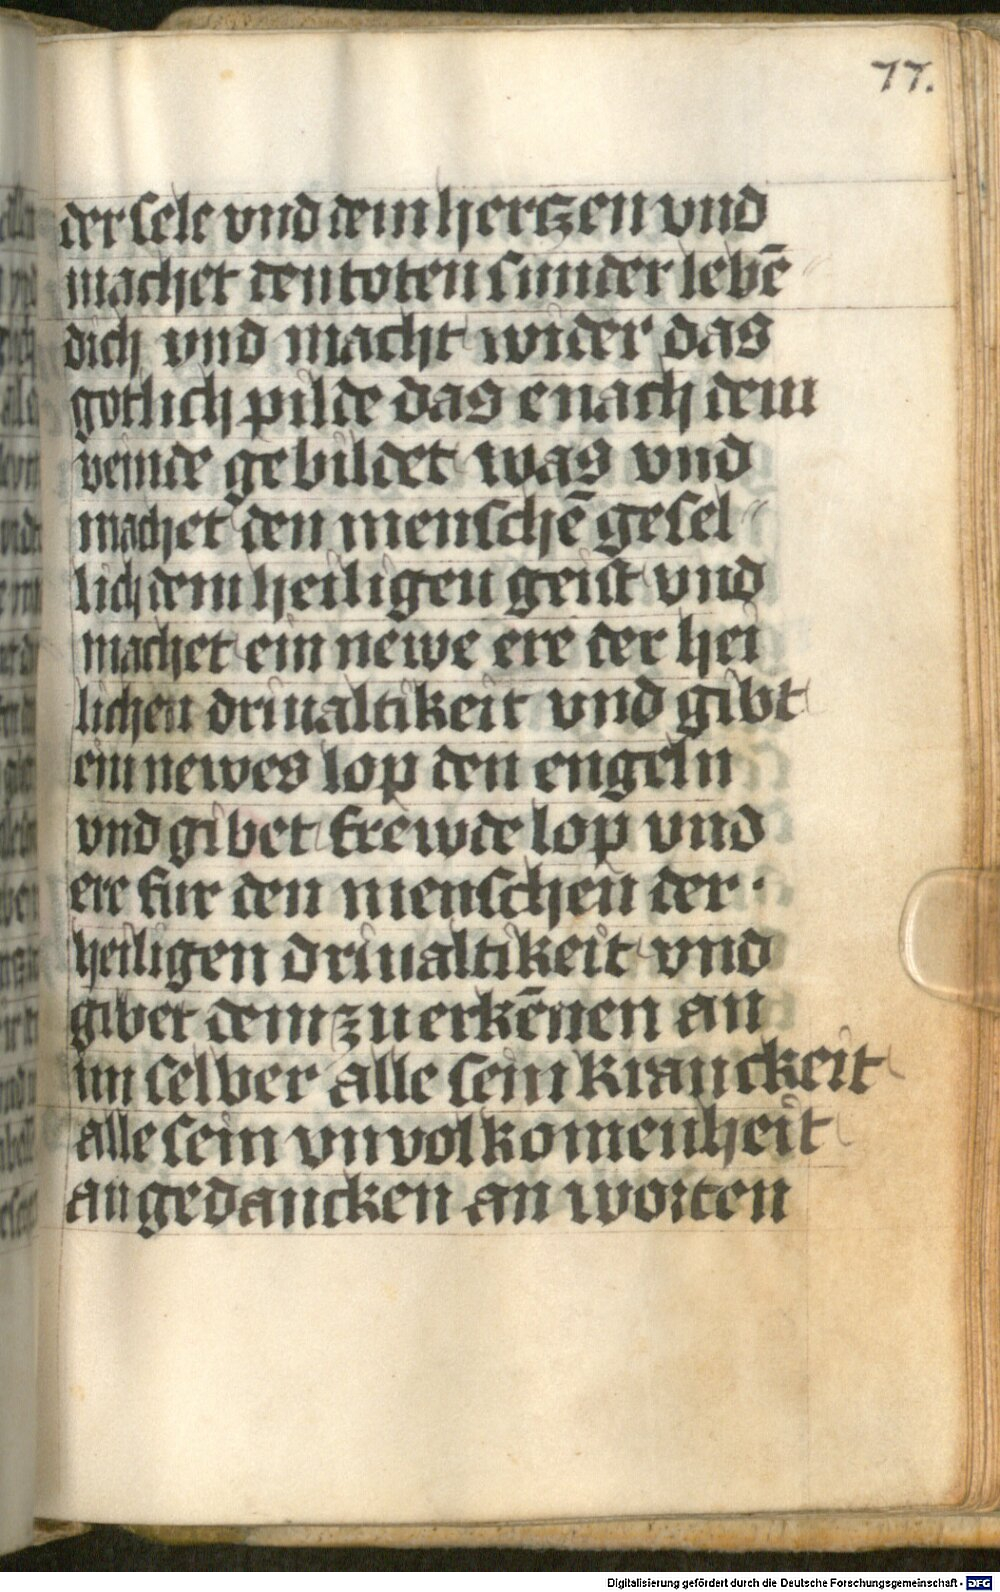 77.
der sele vnd dem herczen vnd
machet den toten sunder lebē
dich vnd macht wider das
gotlich pilde das e nach dem
veinde gebildet was vnd
machet den menschē gesel
lich dem heiligen geist vnd
machet ein newe ere der hei
lichen driualtikeit vnd gibt
ein newes lop den engeln
vnd gibet frewde lop vnd
ere fur den menschen der
heiligen driualtikeit vnd
gibet dem zu erkēnen an
im selber alle sein kranckeit
alle sein vnvolkomenheit
an gedancken an worten
Digitalisierung gefördert durch die Deutsche Forschungsgemeinschaft - DFG